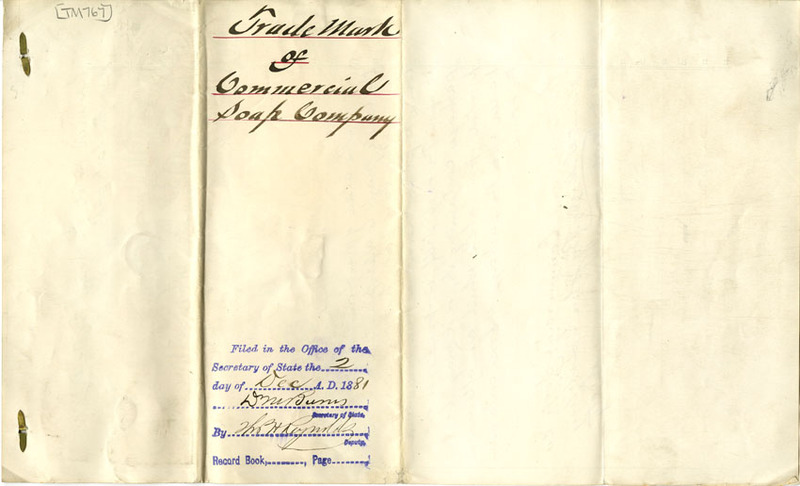 [TM767]
Trade Mark
of
Commercial
Soap Company
Filed in the Office of the
Secretary of State the 2
day of Dec A. D. 1881
D M Burns
Secretary of State,
By Thos H Reynolds
Deputy,
Record Book, Page